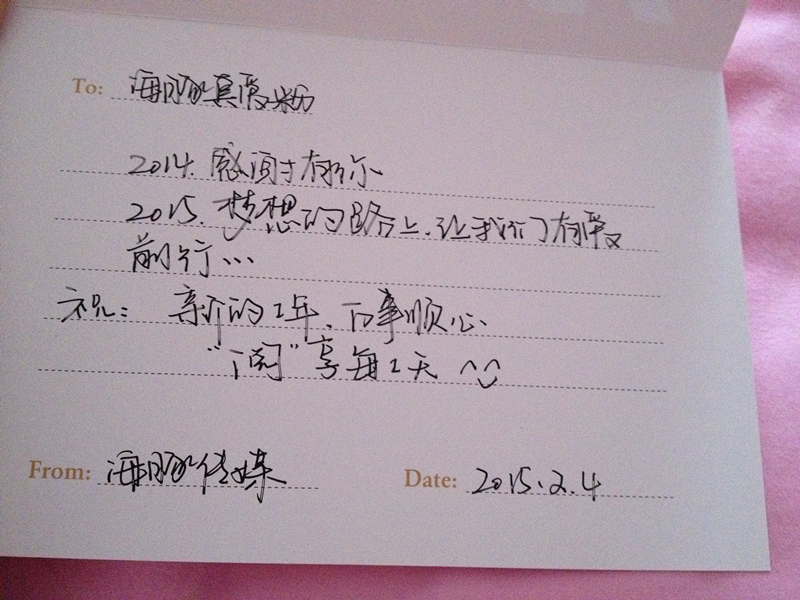 To: 海豚真爱粉
2014. 感恩于有你、
2015. 梦想的路上，让我们有爱
前行…
祝：新的1年，百事顺心、
“阅”享每1天 ^_^
From: 海豚传媒
Date: 2015.2.4